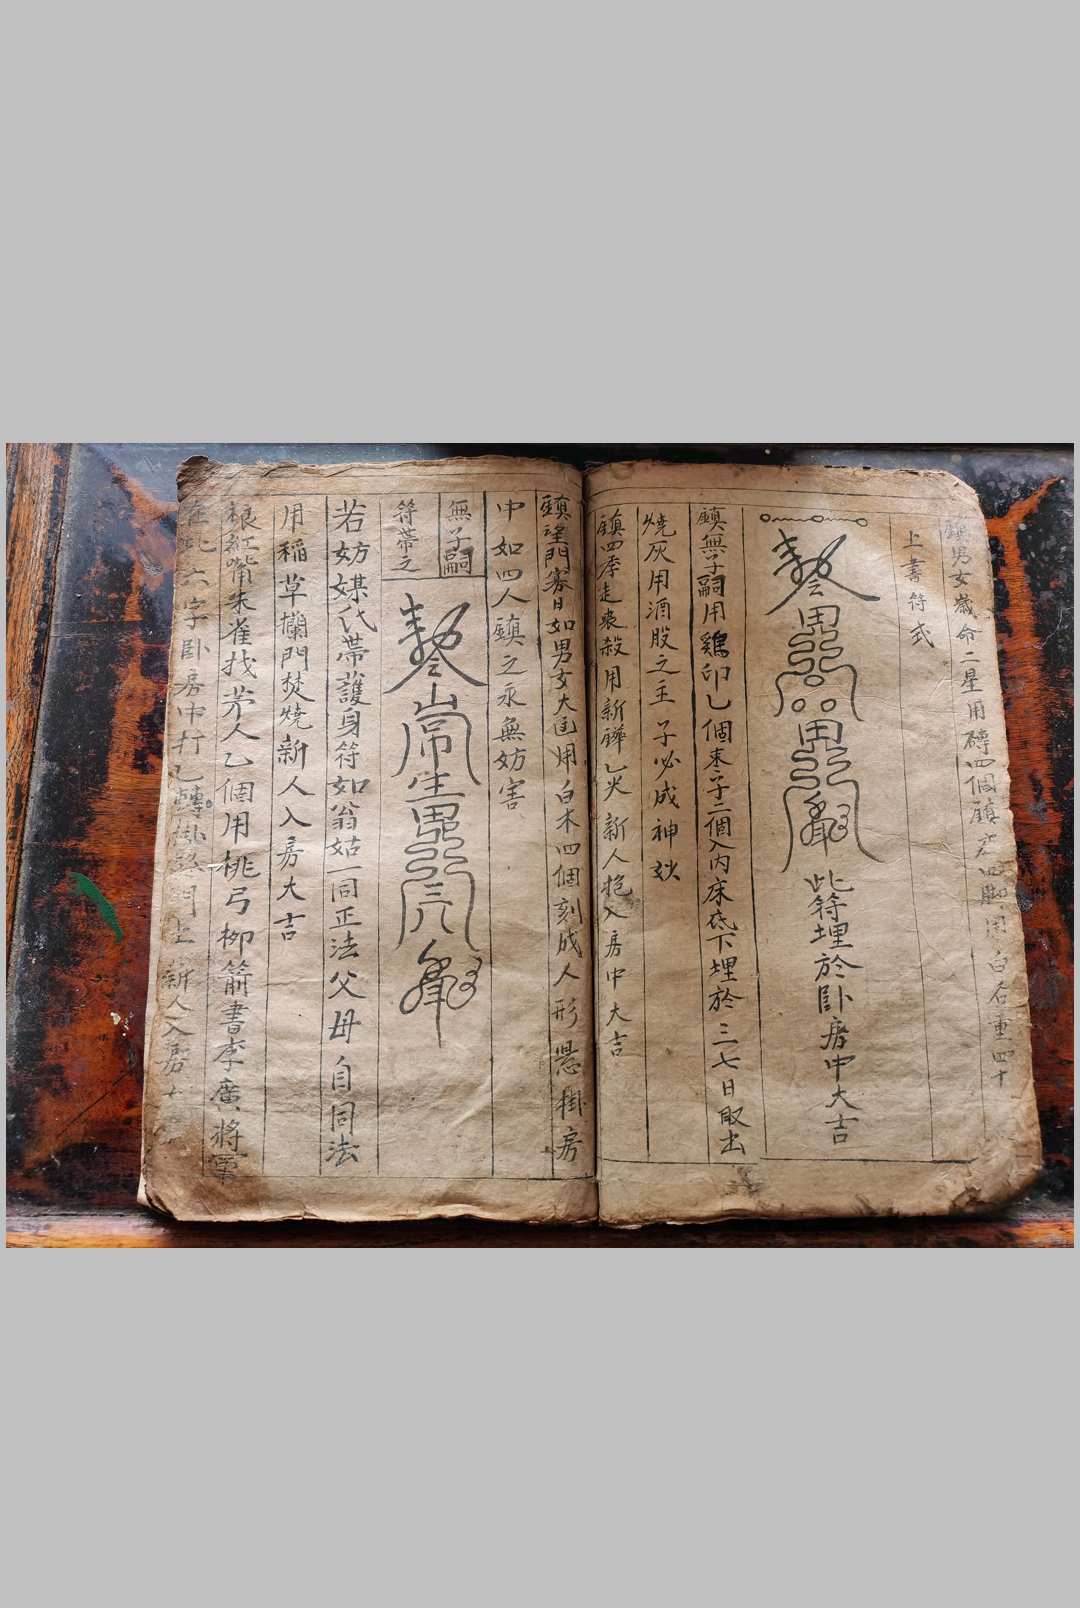 鎮男女歲命二星用磚四個鎮房四腳用白石重四十
上書符式
此符埋於卧房中大吉
鎮無子嗣用鷄卵乙個棗子二個入內床底下埋於三七日取出
燒灰用酒服之主子必成神妙
鎮四季走喪殺用新鏵乙尖新人抱入房中大吉
鎮望門寡日如男女大凶用白木四個刻成人形懸掛房
中如四人鎮之永無妨害
無子嗣
符帶之
若妨媒氏帶護身符如翁姑一同正法父母自同法
用稻草攔門焚燒新人入房大吉
根紅嘴朱雀找茅人乙個用桃弓柳箭書李廣將軍
在此六字卧房中打乙轉掛 門上新人入房